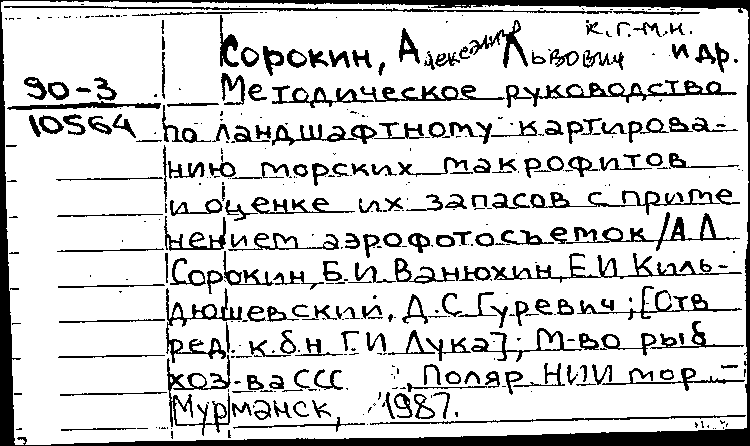 к.г.-м.н.
Сорокин, Александр Львович и др.
90-3
10564
Методическое руководство
по ландшафтному картирова-
нию морских макрофитов
и оценке их запасов с приме
нением аэрофотосъемок/А Л
Сорокин, Б.И. Ванюхин, Е.И Киль-
дюшевский, Д.С Гуревич; [Отв
ред. к.б.н Г.И Лука]; М-во рыб
хоз-ва ССС , Поляр НИИ мор. -
Мурманск, 1987.